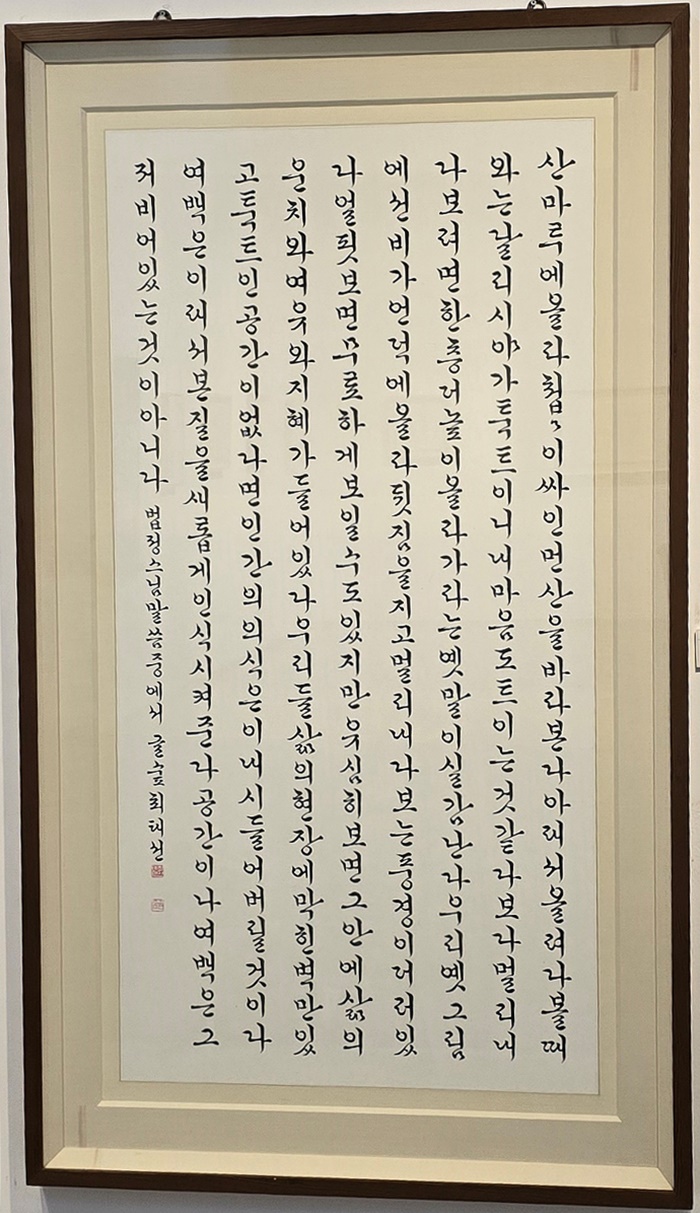 산마루에올라첩〻이싸인먼산을바라본다아래서올려다볼때
와는달리시야가툭트이니내마음도트이는것같다보다멀리내
다보려면한층더높이올라가라는옛말이실감난다우리옛그림
에선비가언덕에올라뒷짐을지고멀리내다보는풍경이더러있
다얼핏보면무료하게보일수도있지만유심히보면그안에삶의
운치와여유와지혜가들어있다우리들삶의현장에막힌벽만있
고툭트인공간이없다면인간의의식은이내시들어버릴것이다
여백은이래서본질을새롭게인식시켜준다공간이나여백은그
저비어있는것이아니다 법정스님말씀중에서 글숲최태선